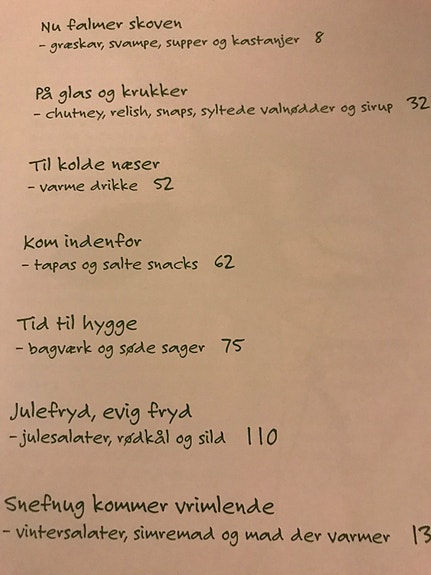 Nu falmer skoven
- græskar, svampe, supper og kastanjer 8
På glas og krukker
- chutney, relish, snaps, syltede valnødder og sirup 32
Til kolde næser
- varme drikke 52
Kom indenfor
- tapas og salte snacks 62
Tid til hygge
- bagværk og søde sager 75
Julefryd, evig fryd
- julesalater, rødkål og sild 110
Snefnug kommer vrimlende
- vintersalater, simremad og mad der varmer